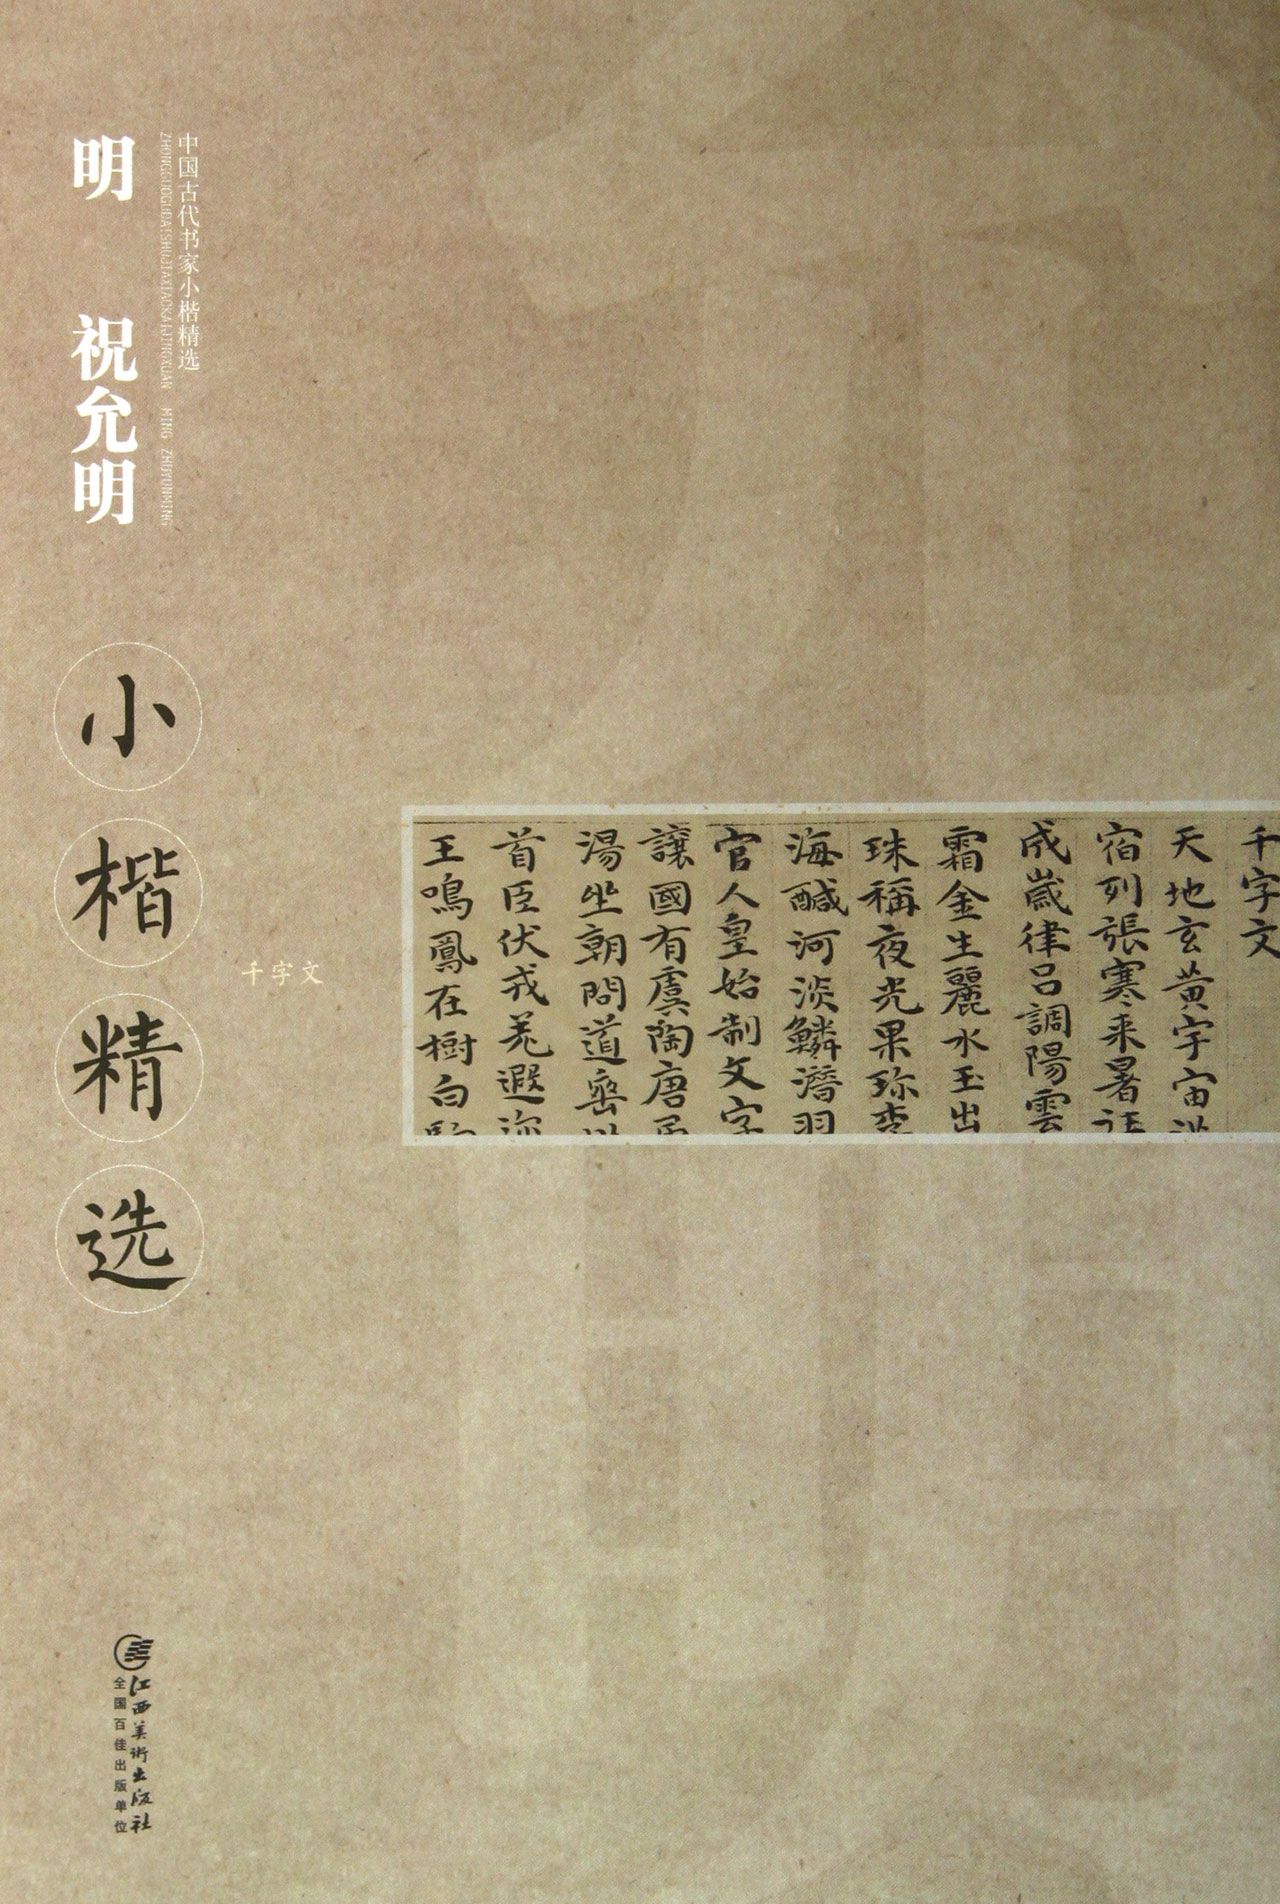 中国古代书家小楷精选
ZHONGGUOGUDAISHUJIAXIAOKAIJINGXUAN MING ZHUYUNMING
明 祝允明
小楷精选
千字文
千字文
天地玄黄宇宙
宿列張寒来暑往
成歲律吕調陽雲
霜金生麗水玉出
珠稱夜光果珎李
海醎河淡鱗潛羽
官人皇始制文字
讓國有虞陶唐
湯坐朝問道垂
首臣伏戎羌遐迩
王鳴鳳在樹白
江西美術出版社
全国百佳出版单位